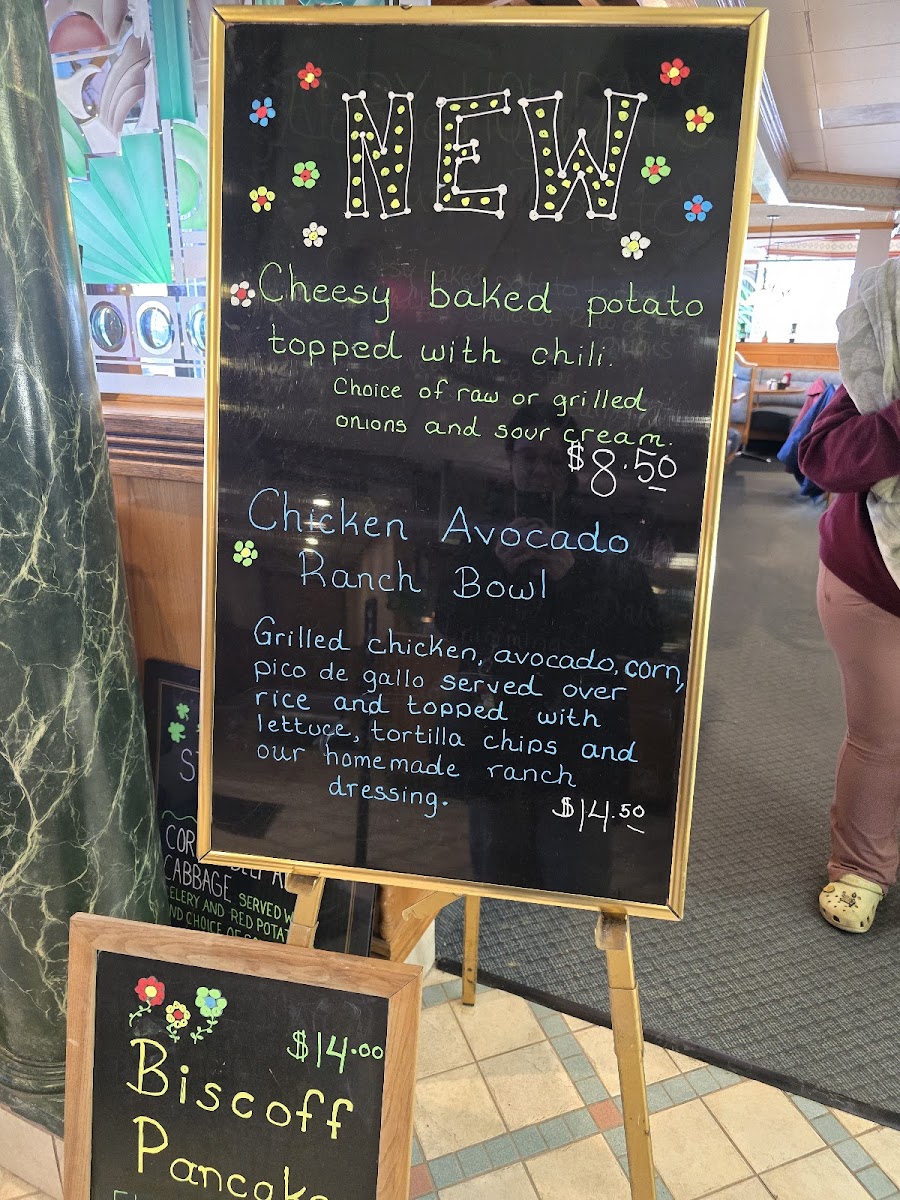 NEW
Cheesy baked potato
topped with chili.
Choice of raw or grilled
onions and sour cream.
$8.50
Chicken Avocado
Ranch Bowl
Grilled chicken, avocado, corn,
pico de gallo served over
rice and topped with
lettuce, tortilla chips and
our homemade ranch
dressing.
$14.50
CABBAGE SERVED
AND RED
CHOICE OF
$14.00
Biscoff